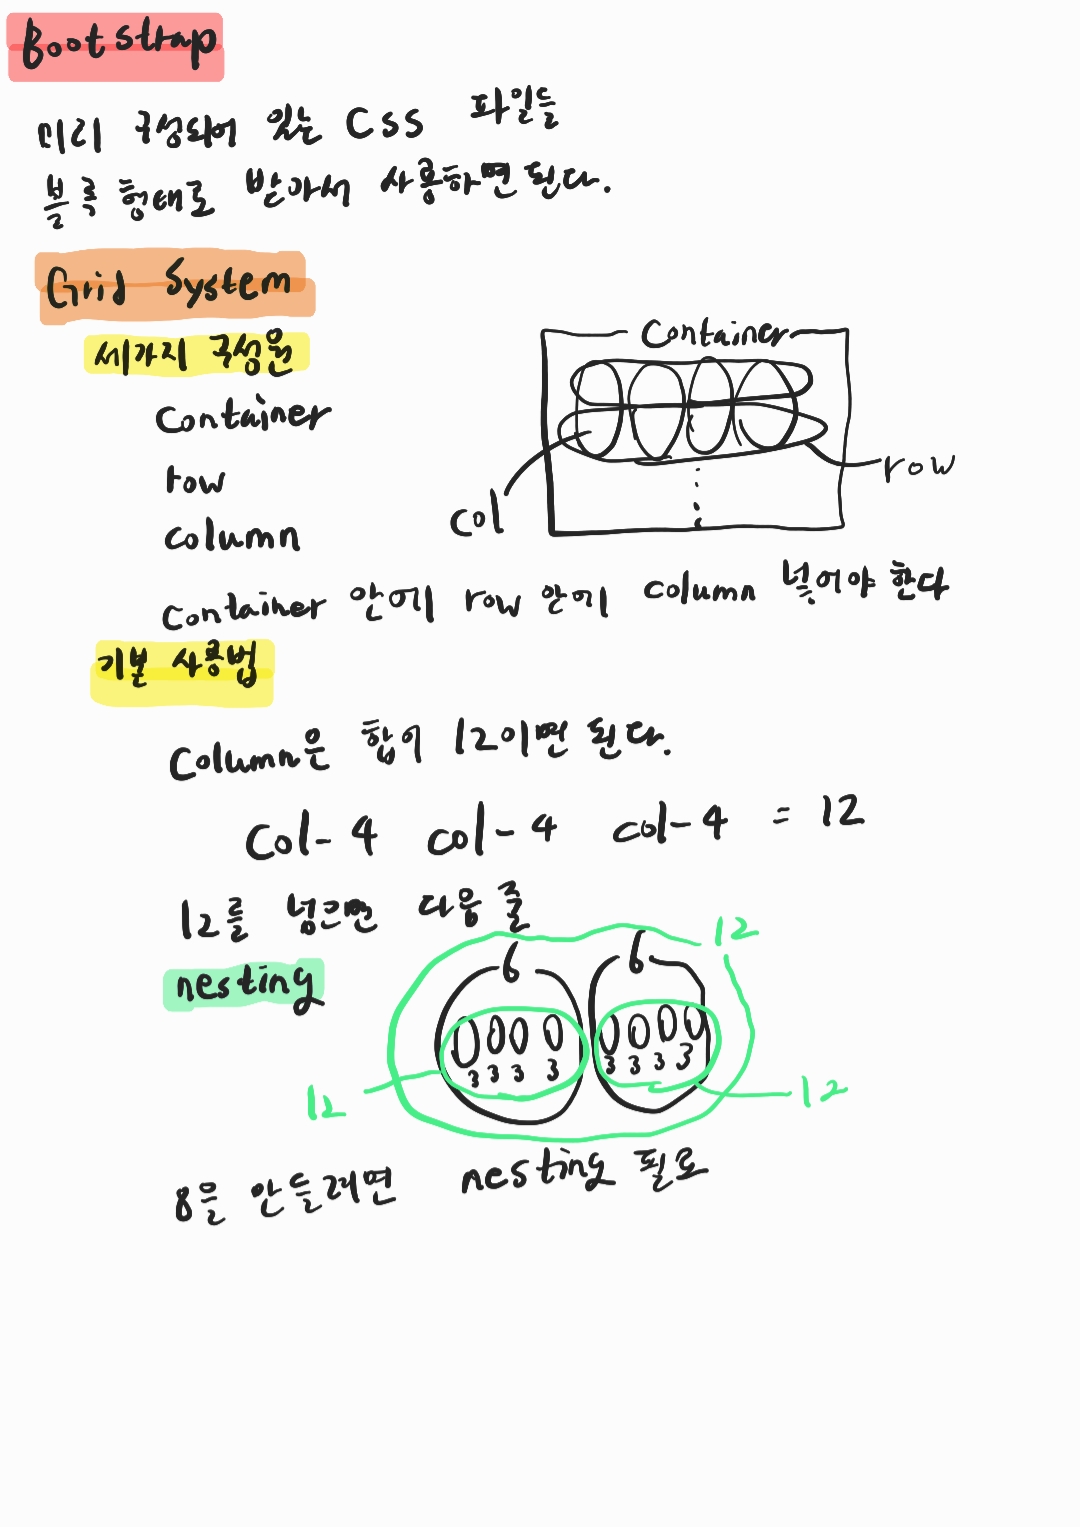 Bootstrap
미리 구성되어 있는 CSS 파일들
블록 형태로 받아서 사용하면 된다.
Grid System
세가지 구성원
Container
Container
row
row
col
column
Container 안에 row 안에 column 넣어야 한다
기본 사용법
Column은 합이 12이면 된다.
Col-4 col-4 col-4 = 12
12를 넘으면 다음 줄
12
6 6
nesting
3 3 3 3 3 3 3 3
12 12
8을 만들려면 nesting 필요